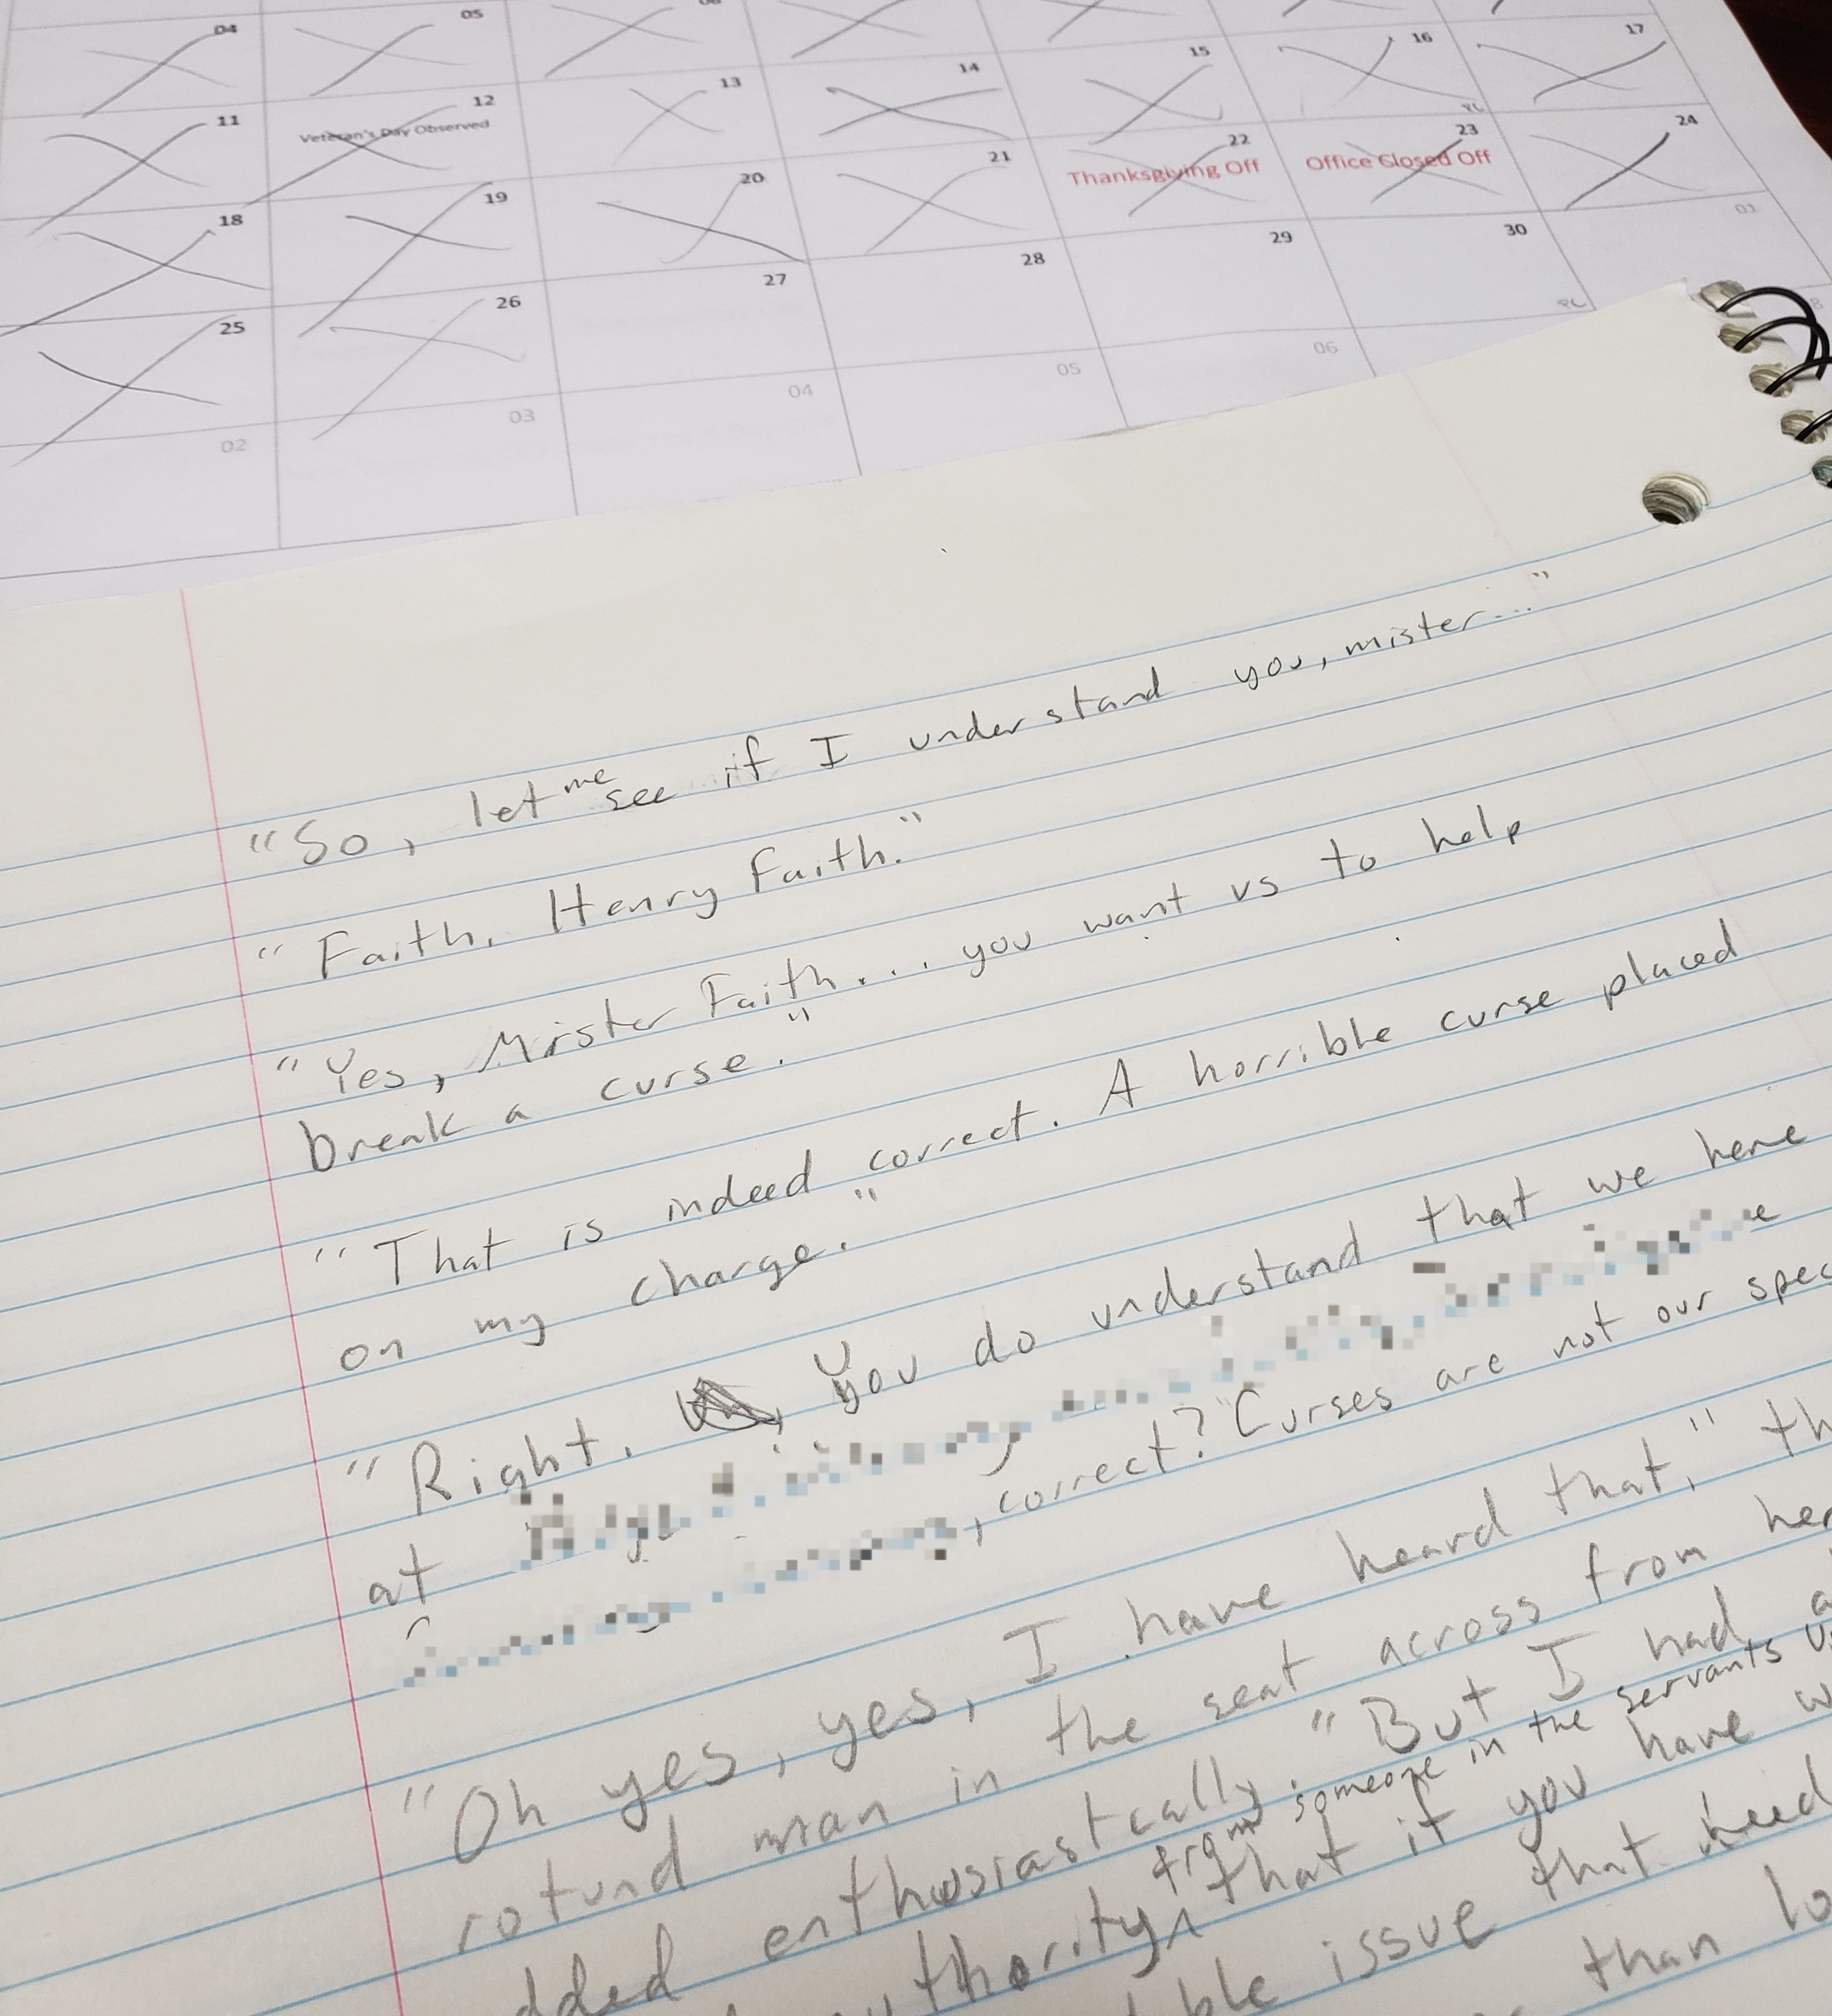 04 05 06
11 12 13 14 15 16 17
Veteran's Day Observed
18 19 20 21 22 23 24
Thanksgiving Off Office Closed Off
25 26 27 28 29 30 01
02 03 04 05 06
"So, let me see if I understand you, mister..."
"Faith. Henry Faith."
"Yes, Mister Faith... you want us to help
break a curse."
"That is indeed correct. A horrible curse placed
on my charge."
"Right. You do understand that we here
at
, correct? Curses are not our spec
"Oh yes, yes, I have heard that," th
rotund man in the seat across from her
dded enthusiastically. "But I had
thority, from someone in the servants that if you have
ble issue that need
than lo